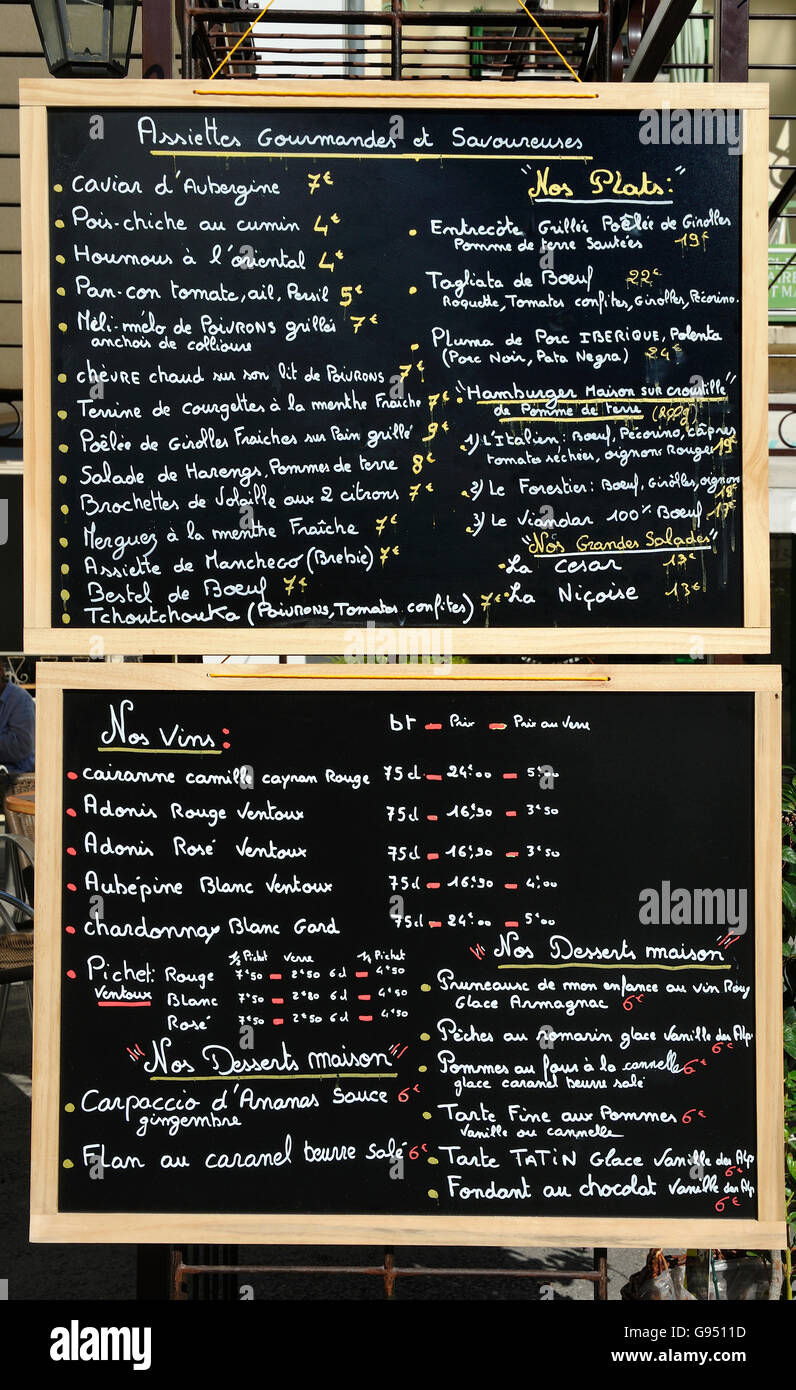 Assiettes Gourmandes et Savoureuses
Caviar d'Aubergine 7€
Pois-chiche au cumin 4€
Houmous à l'oriental 4€
Pan-con tomate, ail, Persil 5€
Méli-mélo de POIVRONS grillés 7€
anchois de collioure
chèvre chaud sur son lit de POIVRONS 7€
Terrine de courgettes à la menthe Fraîche 7€
Poêlée de Girolles Fraiches sur Pain grillé 9€
Salade de Harengs, Pommes de terre 8€
Brochettes de Volaille aux 2 citrons 7€
Merguez à la menthe Fraîche 7€
Assiette de Manchego (Brebie) 7€
Bestel de Boeuf 7€
Tchoutchouka (POIVRONS, Tomates confites) 7€
"Nos Plats:"
Entrecôte Grillée Poêlée de Girolles
Pomme de terre Sautées 19€
Tagliata de Boeuf 22€
Roquette, Tomates confites, Girolles, Pécorino.
Pluma de Porc IBERIQUE, Polenta
(Porc Noir, Pata Negra) 24€
"Hamburger Maison sur croustille"
de Pomme de terre (200g)
1) L'Italien: Boeuf, Pécorino, câpres
tomates séchées, oignons Rouges 19€
2) Le Forestier: Boeuf, Girolles, oignons 18€
3) Le Viandar 100% Boeuf 17€
"Nos Grandes Salades"
La Cesar 13€
La Niçoise 13€
Nos Vins:
bt - Prix - Prix au Verre
cairanne camille caynan Rouge 75cl - 24€00 - 5€00
Adonis Rouge Ventoux 75cl - 16€90 - 3€50
Adonis Rosé Ventoux 75cl - 16€90 - 3€50
Aubépine Blanc Ventoux 75cl - 16€90 - 4€00
chardonnay Blanc Gard 75cl - 24€00 - 5€00
1/2 Pichet Verre 1/4 Pichet
Pichet: Rouge 7€50 - 2€50 6cl - 4€50
Ventoux Blanc 7€50 - 2€80 6cl - 4€50
Rosé 7€50 - 2€50 6cl - 4€50
"Nos Desserts maison"
Carpaccio d'Ananas Sauce 6€
gingembre
Flan au caramel beurre salé 6€
"Nos Desserts maison"
Pruneausc de mon enfance au vin Rouy
Glace Armagnac 6€
Pêches au romarin glace Vanille des Alp. 6€
Pommes au four à la cannelle 6€
glace caramel beurre salé
Tarte Fine aux Pommes 6€
Vanille ou cannelle
Tarte TATIN Glace Vanille des Alp 6€
Fondant au chocolat Vanille des Alp 6€
alamy
Image ID: G9511D
www.alamy.com